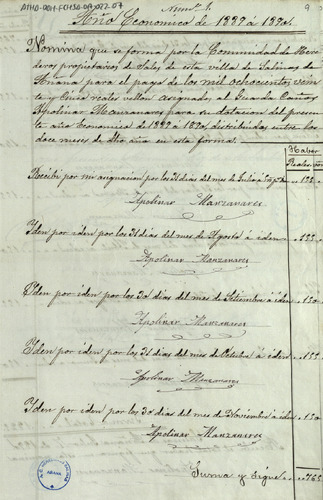 ATHO-DAH-FCH50-
Num.º 1.
9
Año Economico de 1889 a 1890.
Nomina que se forma por la Comunidad de Here-
deros propietarios de Sales de esta villa de Salinas de
Añana para el pago de los mil ochocientos vein
te y cinco reales vellon asignados al Guarda Cañas
Apolinar Manzanares para su dotacion del presen-
te año Economico de 1889 a 1890, distribuidas entre los
doce meses de dho año en esta forma.
Haber
Reales
Recibi por mi asignacion por los 31 dias del mes de Julio á
Apolinar Manzanares
Iden por iden por los 31 dias del mes de Agosto á iden
Apolinar Manzanares
Iden por iden por los 30 dias del mes de Setiembre á iden 150
Apolinar Manzanares
Iden por iden por los 31 dias del mes de Octubre á iden 155
Apolinar Manzanares
Iden por iden por los 30 dias del mes de Noviembre á iden 150
Apolinar Manzanares
Suma y Sigue 765
AÑANA